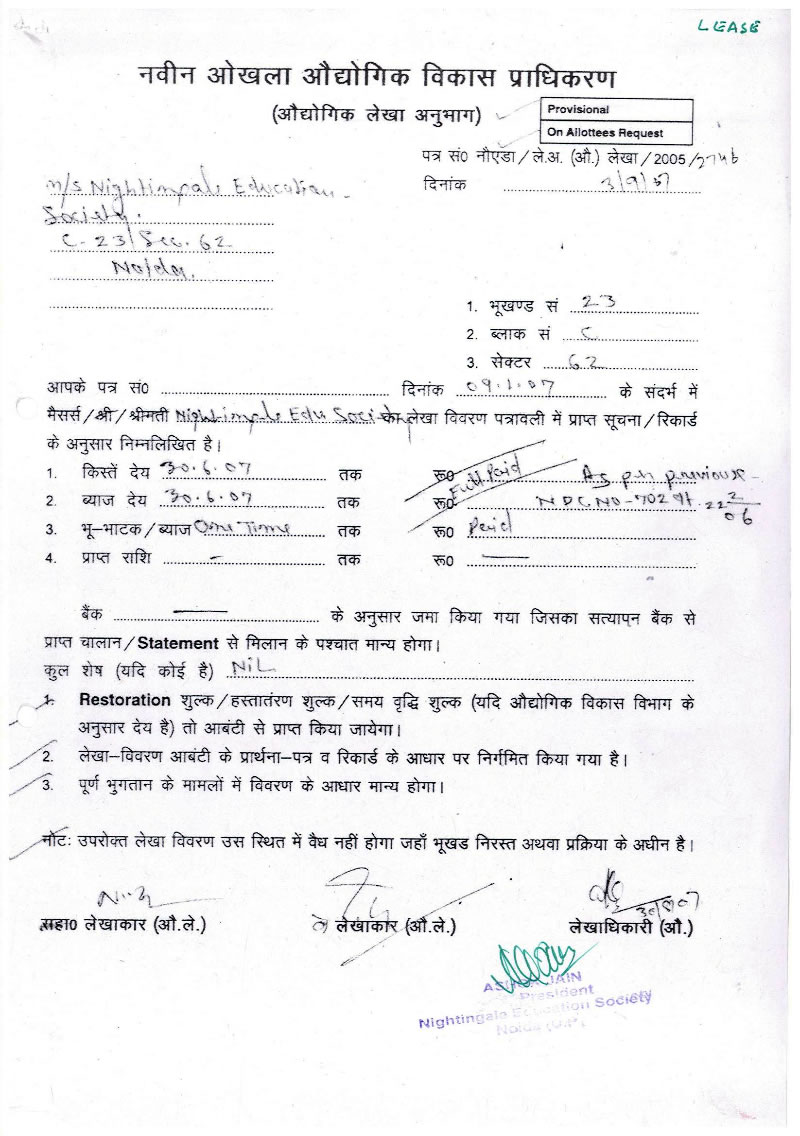 LEASE
नवीन ओखला औद्योगिक विकास प्राधिकरण
(औद्योगिक लेखा अनुभाग)
Provisional
On Allottees Request
पत्र सं0 नौएडा/ले.अ. (औ.) लेखा/2005/2746
दिनांक 3/9/07
M/s Nightingale Education
Society.
C-23/Sec. 62
Noida.
1. भूखण्ड सं 23
2. ब्लाक सं C
3. सेक्टर 62
आपके पत्र सं0 दिनांक 09.1.07 के संदर्भ में
मैसर्स/श्री/श्रीमती Nightingale Edu Society का लेखा विवरण पत्रावली में प्राप्त सूचना/रिकार्ड
के अनुसार निम्नलिखित है।
1. किस्तें देय 30.6.07 तक रू0 Full Paid As per previous
2. ब्याज देय 30.6.07 तक रू0 NDC NO-
3. भू-भाटक/ब्याज One Time तक रू0 Paid
4. प्राप्त राशि - तक रू0 —
बैंक — के अनुसार जमा किया गया जिसका सत्यापन बैंक से
प्राप्त चालान/Statement से मिलान के पश्चात मान्य होगा।
कुल शेष (यदि कोई है) NiL
1. Restoration शुल्क/हस्तातंरण शुल्क/समय वृद्धि शुल्क (यदि औद्योगिक विकास विभाग के
अनुसार देय है) तो आबंटी से प्राप्त किया जायेगा।
2. लेखा-विवरण आबंटी के प्रार्थना-पत्र व रिकार्ड के आधार पर निर्गमित किया गया है।
3. पूर्ण भुगतान के मामलों में विवरण के आधार मान्य होगा।
नोट: उपरोक्त लेखा विवरण उस स्थित में वैध नहीं होगा जहाँ भूखड निरस्त अथवा प्रक्रिया के अधीन है।
सहा0 लेखाकार (औ.ले.) लेखाकार (औ.ले.) लेखाधिकारी (औ.)
ASHOK JAIN
President
Nightingale Education Society
Noida (U.P.)